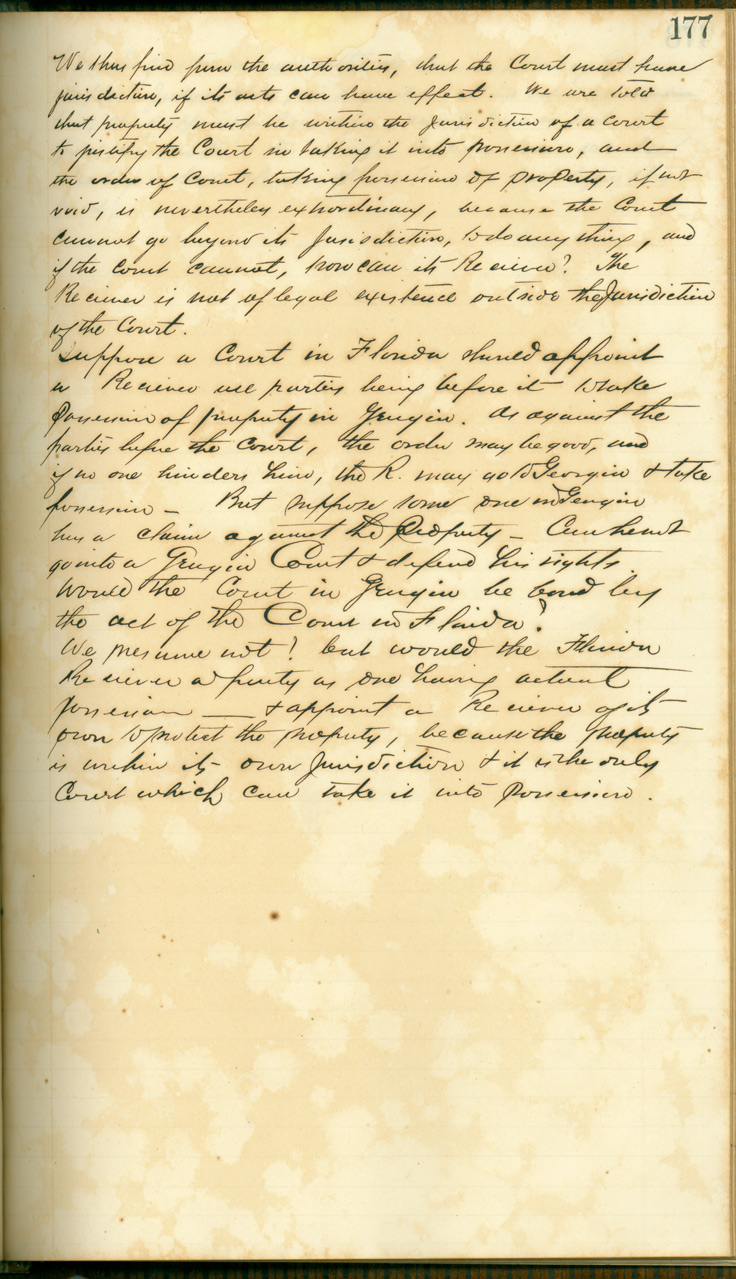 177
We thus find from the authorities, that the Court must have
jurisdiction, if its acts can have effect. We are told
that property must be within the Jurisdiction of a Court
to justify the Court in taking it into possession, and
the order of Court, taking possession of property, if not
void, is nevertheless extrordinary, because the Court
cannot go beyond its Jurisdiction, to do any thing, and
if the Court cannot, how can its Reciever? The
Reciever is not of legal existence outside the Jurisdiction
of the Court.
Suppose a Court in Florida should appoint
a Reciever parties being before it to take
Possession of property in Georgia. As against the
parties before the Court, the order may be good, and
if no one hinders him, the R. may go to Georgia & take
possession — But suppose some one in Georgia
has a claim against the Property — Can he not
go into a Georgia Court & defend his rights
Would the Court in Georgia be bound by
the act of the Court in Florida?
We presume not! but would the Florida
Reciever a party as one having actual
possession — & appoint a Reciever of its
own to protect the property, because the property
is within its own Jurisdiction & it is the only
Court which can take it into Possession.